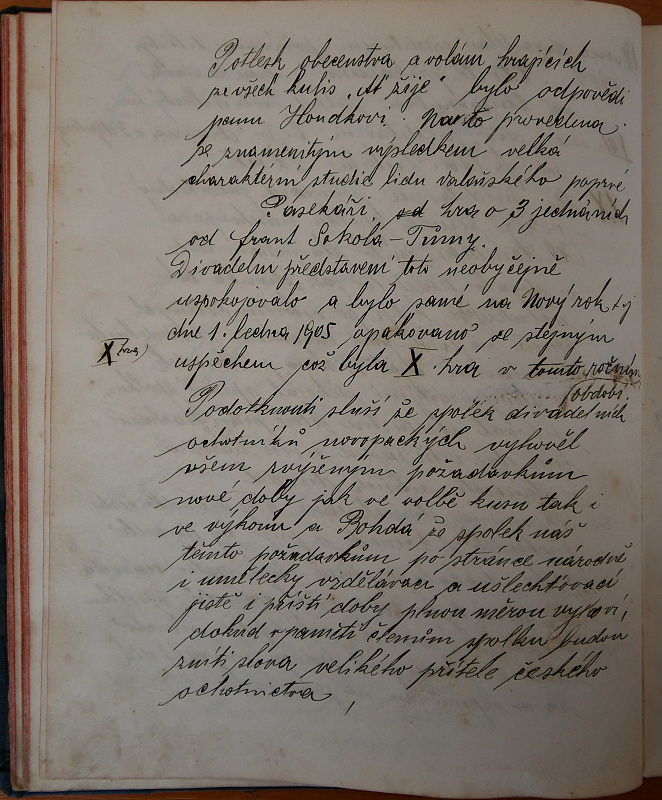 Potlesk obecenstva a volání hrajících
ze všech kulis „Ať žije" bylo odpovědí
panu Houdkovi. Na to provedena
se znamenitým výsledkem velká
charaktérní studie lidu valašského poprvé
Pasekáři, od hra o 3 jednáních
od Frant Sokola-Tůmy.
Divadelní představení toto neobyčejně
uspokojovalo a bylo samé na Nový rok tj
dne 1. ledna 1905 opakováno se stejným
X hra)
úspěchem což byla X hra v tomto ročním
období.
Podotknouti sluší že spolek divadelních
ochotníků novopackých vyhověl
všem zvýšeným požadavkům
nové doby jak ve volbě kusů tak i
ve výkonu a Bohdá že spolek náš
těmto požadavkům po stránce národní
i umělecky vzdělávací a ušlechťovací
jistě i příští doby plnou měrou vyhoví,
dokud v paměti členům spolku budou
zníti slova velikého přítele českého
ochotnictva